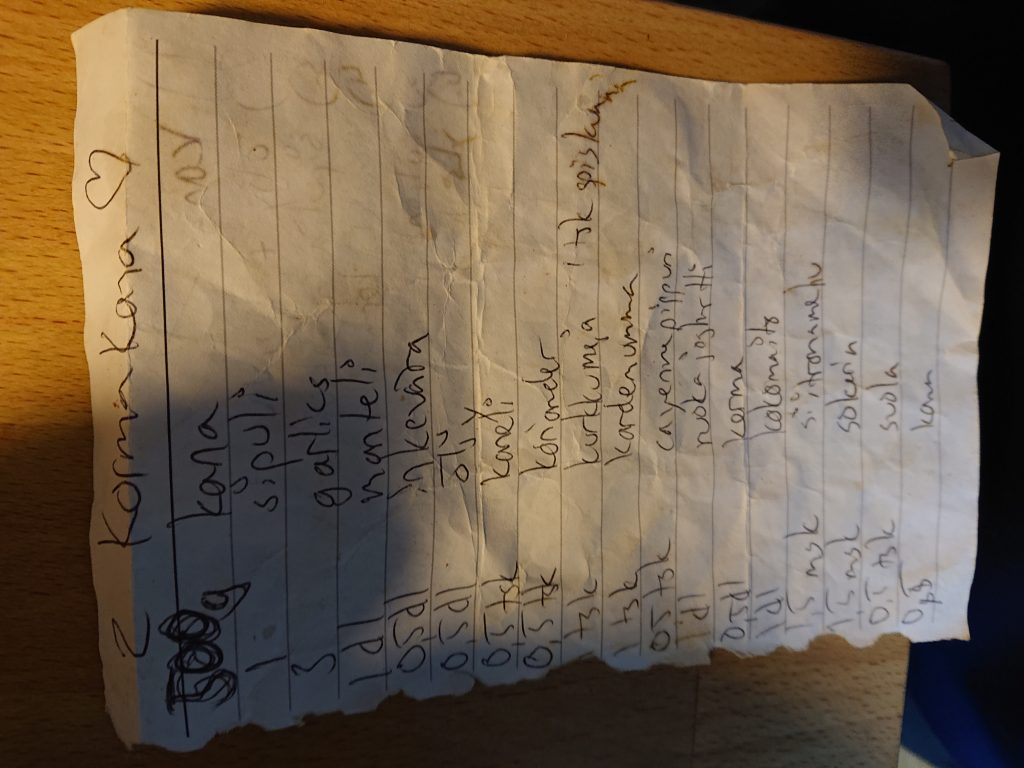 2 Korma Kana ♡
500g kana
1 sipuli
3 garlics
1 dl manteli
0,5 dl inkevära
0,5 dl öliy
0,5 tsk kaneli
0,5 tsk koriander
1 tsk kurkkumaja 1 tsk spiskummin
1 tsk kardemumma
0,5 tsk cayenne pippuri
1 dl ruoka joghurtti
0,5 dl korma
1 dl kokomaito
1,5 msk sitronmehu
1,5 msk sokerin
0,5 tsk suola
0,5 ps kanu